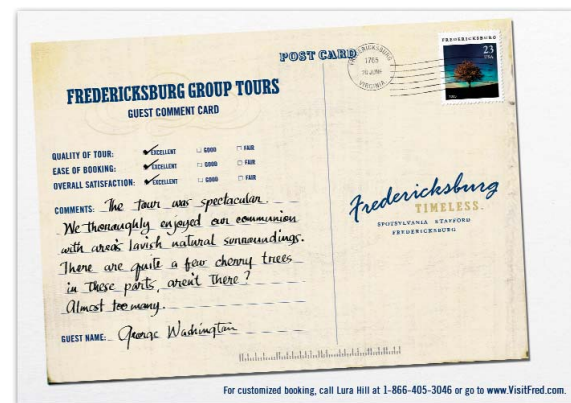 POST CARD
FREDERICKSBURG
1765
10 JUNE
VIRGINIA
FREDERICKSBURG
23
USA
FREDERICKSBURG GROUP TOURS
GUEST COMMENT CARD
QUALITY OF TOUR: EXCELLENT GOOD FAIR
EASE OF BOOKING: EXCELLENT GOOD FAIR
OVERALL SATISFACTION: EXCELLENT GOOD FAIR
COMMENTS: The tour was spectacular.
We thoroughly enjoyed our communion
with area's lavish natural surroundings.
There are quite a few cherry trees
in these parts, aren't there?
Almost too many.
GUEST NAME: George Washington
Fredericksburg
TIMELESS.
SPOTSYLVANIA STAFFORD
FREDERICKSBURG
For customized booking, call Lura Hill at 1-866-405-3046 or go to www.VisitFred.com.